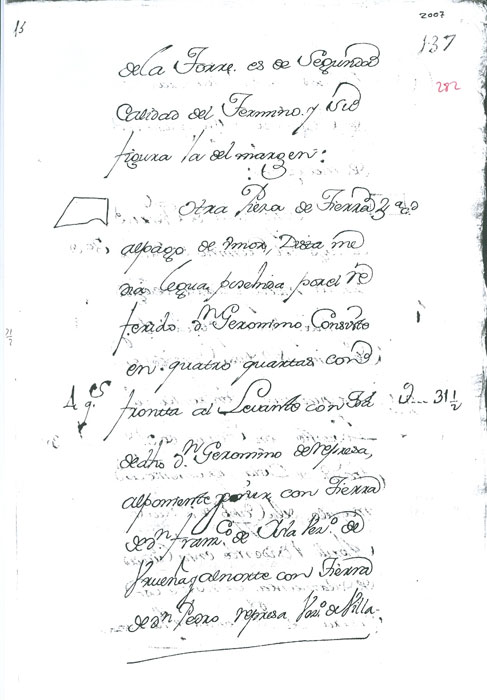 15
2007
137
282
de la Torre. es de Segunda
Calidad del Termino. y su
figura la del margen:
Otra Pieza de Tierra
al pago de dista me
dia legua posehida por el re
ferido Dn. Geronimo, Consiste
en quatro quartas con
4 qs
fronta al Levante con
31 1/2
de dho Dn. Geronimo de represa,
al poniente y sur con Tierra
de Dn. Franco. de Vezo. de
y al norte con Tierra
de Dn Pedro represa Vezo. de Villa-